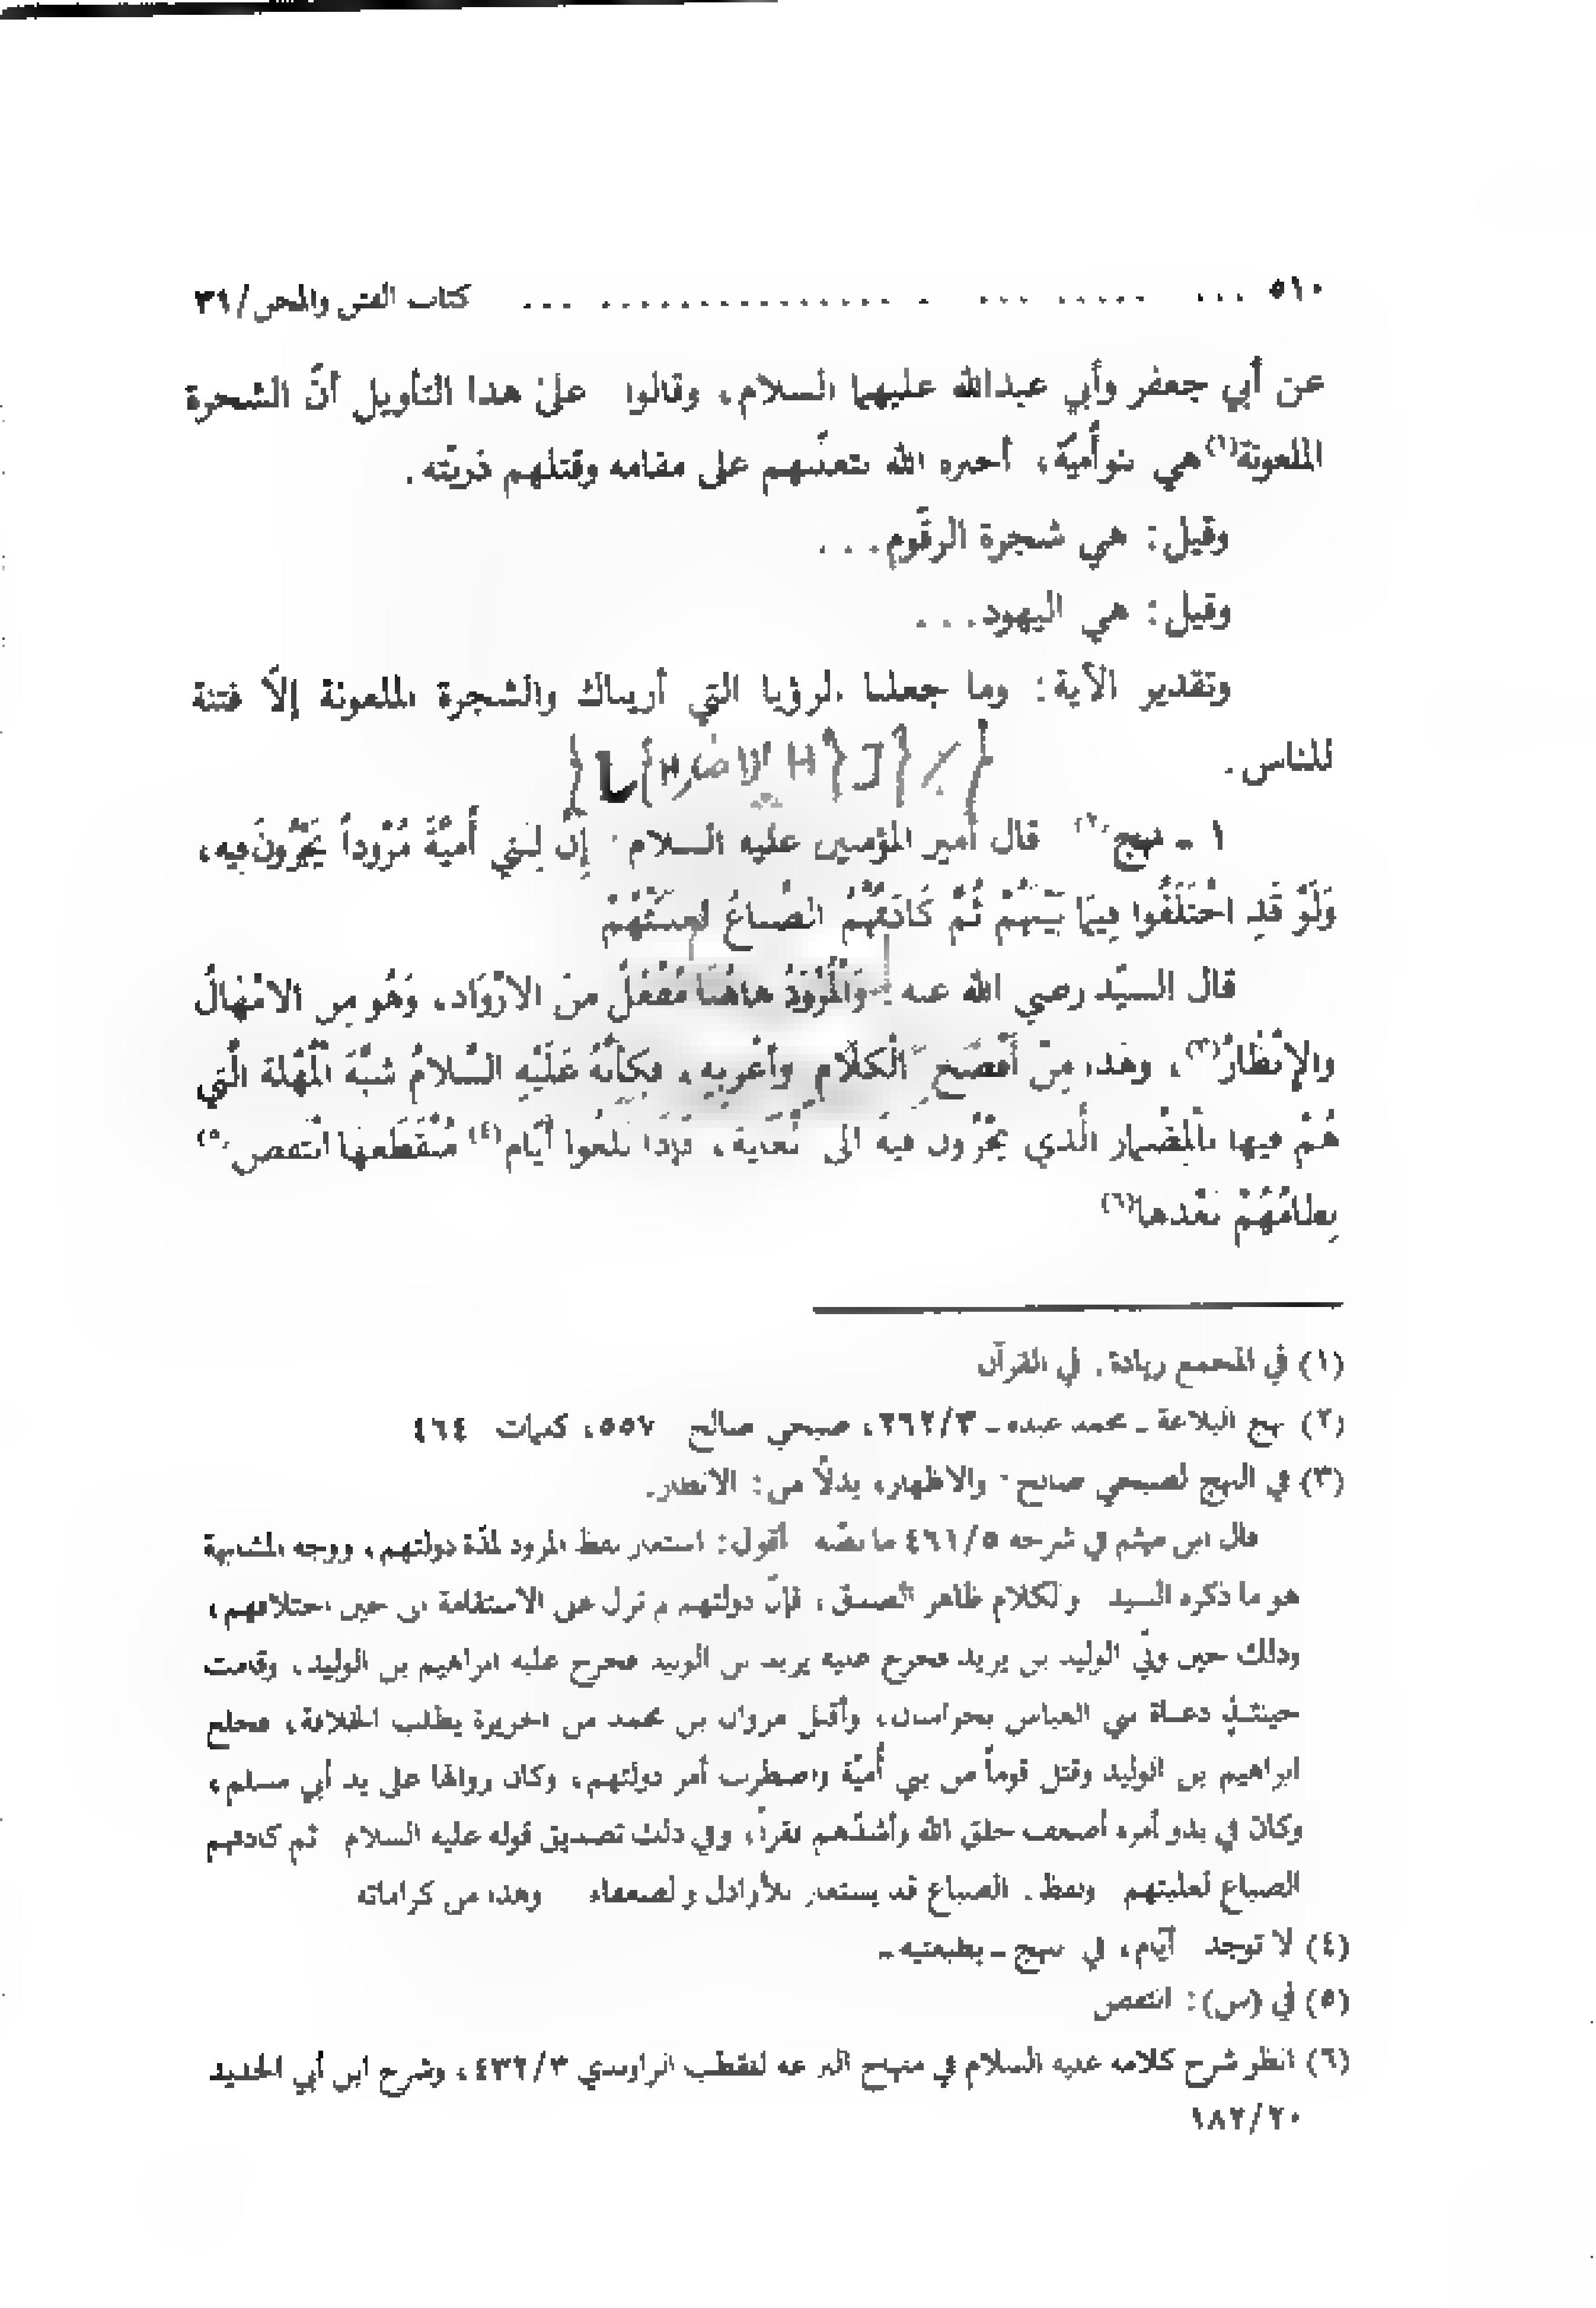 ٥١٠ ... ..... ... . ............... ... كتاب الفتن والمحن/٣١
عن أبي جعفر وأبي عبدالله عليهما السلام، وقالوا على هذا التأويل أنّ الشجرة
الملعونة(١) هي بنو أُميّة، أخبره الله بتغلّبهم على مقامه وقتلهم ذريّته.
وقيل: هي شجرة الزقّوم...
وقيل: هي اليهود...
وتقدير الآية: وما جعلنا الرؤيا التي أريناك والشجرة الملعونة إلاّ فتنة
للناس.
١ - نهج(٢) قال أمير المؤمنين عليه السلام: إِنَّ لِبَني أُمَيَّةَ مُرْوَداً يَجْرُونَ فيه،
وَلَوْ قَدِ اخْتَلَفُوا فِيمَا بَيْنَهُمْ ثُمَّ كَادَتْهُمُ الضِّباعُ لَغَلَبَتْهُمْ
قال السيّد رضي الله عنه: وَالْمُرْوَدُ هاهُنَا مُفْعَلٌ مِنَ الارْوَاد، وَهُو مِن الامْهَالُ
والإِنْظَارُ(٣)، وهَذا مِنْ أَفْصَحِ الْكَلَامِ وأَغْرَبِهِ، فكأنَّهُ عَلَيْهِ السَّلامُ شَبَّهَ الْمُهْلة الَّتي
هُمْ فيها بالْمِضْمار الَّذي يَجْرُون فيهَ الى الْغَاية، فإذَا بَلَغُوا أيّام(٤) مُنْقَطَعَها انْتَقص(٥)
نِظامُهُمْ بَعْدها(٦)
(١) في المجمع زيادة: في القرآن
(٢) نهج البلاغة - محمد عبده - ٢٦٢/٣، صبحي صالح ٥٥٧، كلمات ٤٦٤
(٣) في النهج لصبحي صالح: والاظهار، بدلاً من: الانظار.
قال ابن ميثم في شرحه ٤٦١/٥ ما نصّه أقول: استعار لفظ المرود لمدّة دولتهم، ووجه المشابهة
هو ما ذكره السيد والكلام ظاهر الصدق، فإنّ دولتهم لم تزل على الاستقامة الى حين اختلافهم،
وذلك حين ولّي الوليد بن يزيد فخرج عليه يزيد بن الوليد فخرج عليه ابراهيم بن الوليد، وقامت
حينئذٍ دعاة بني العباس بخراسان، وأقبل مروان بن محمد من الجزيرة يطلب الخلافة، فخلع
ابراهيم بن الوليد وقتل قوماً من بني أُميّة واضطرب أمر دولتهم، وكان زوالها على يد أبي مسلم،
وكان في بدو أمره أضعف خلق الله وأشدّهم فقراً، وفي ذلك تصديق قوله عليه السلام ثم كادتهم
الضباع لغلبتهم ولفظ: الضباع قد يستعار للأراذل والضعفاء وهذا من كراماته
(٤) لا توجد أيّام، في نهج - بطبعتيه -
(٥) في (س): انتقص
(٦) انظر شرح كلامه عليه السلام في منهاج البراعه للقطب الراوندي ٤٣٢/٣، وشرح ابن أبي الحديد
١٨٢/٢٠